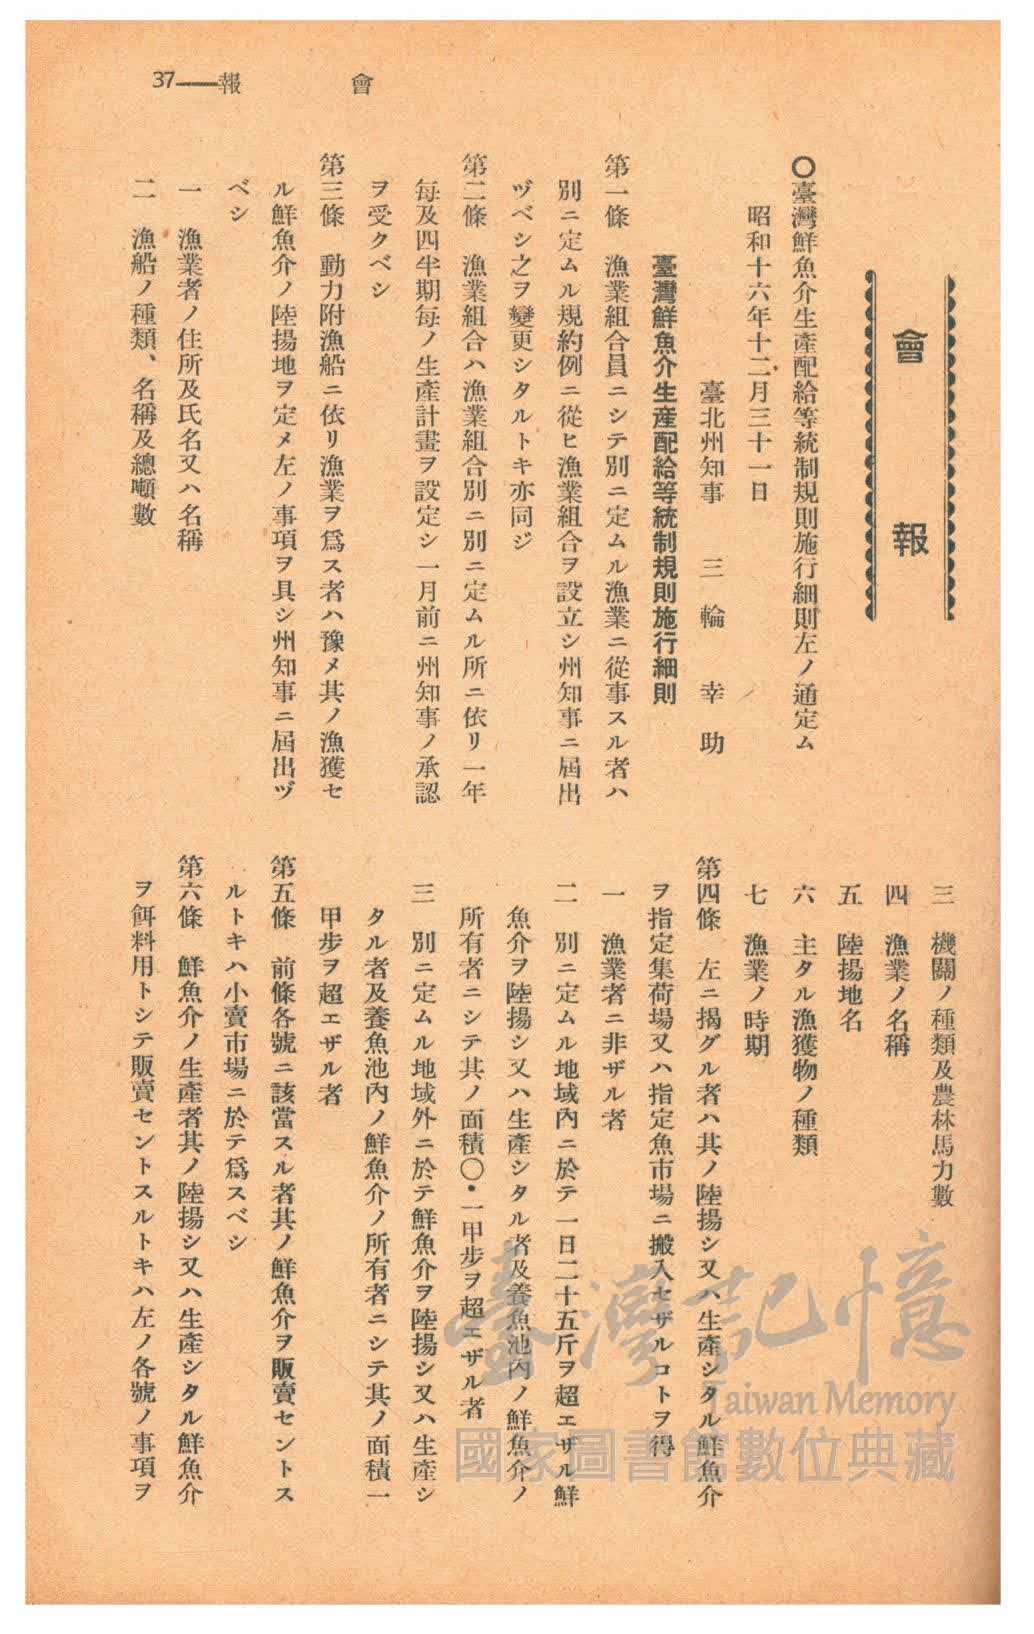 37——報　會
會報
〇臺灣鮮魚介生產配給等統制規則施行細則左ノ通定ム
昭和十六年十二月三十一日
臺北州知事　三輪幸助
臺灣鮮魚介生產配給等統制規則施行細則
第一條　漁業組合員ニシテ別ニ定ムル漁業ニ從事スル者ハ
別ニ定ムル規約例ニ從ヒ漁業組合ヲ設立シ州知事ニ屆出
ヅベシ之ヲ變更シタルトキ亦同ジ
第二條　漁業組合ハ漁業組合別ニ別ニ定ムル所ニ依リ一年
每及四半期每ノ生產計畫ヲ設定シ一月前ニ州知事ノ承認
ヲ受クベシ
第三條　動力附漁船ニ依リ漁業ヲ爲ス者ハ豫メ其ノ漁獲セ
ル鮮魚介ノ陸揚地ヲ定メ左ノ事項ヲ具シ州知事ニ屆出ヅ
ベシ
一　漁業者ノ住所及氏名又ハ名稱
二　漁船ノ種類、名稱及總噸數
三　機關ノ種類及農林馬力數
四　漁業ノ名稱
五　陸揚地名
六　主タル漁獲物ノ種類
七　漁業ノ時期
第四條　左ニ揭グル者ハ其ノ陸揚シ又ハ生產シタル鮮魚介
ヲ指定集荷場又ハ指定魚市場ニ搬入セザルコトヲ得
一　漁業者ニ非ザル者
二　別ニ定ムル地域內ニ於テ一日二十五斤ヲ超エザル鮮
魚介ヲ陸揚シ又ハ生產シタル者及養魚池內ノ鮮魚介ノ
所有者ニシテ其ノ面積〇・一甲步ヲ超エザル者
三　別ニ定ムル地域外ニ於テ鮮魚介ヲ陸揚シ又ハ生產シ
タル者及養魚池內ノ鮮魚介ノ所有者ニシテ其ノ面積一
甲步ヲ超エザル者
第五條　前條各號ニ該當スル者其ノ鮮魚介ヲ販賣セントス
ルトキハ小賣市場ニ於テ爲スベシ
第六條　鮮魚介ノ生產者其ノ陸揚シ又ハ生產シタル鮮魚介
ヲ餌料用トシテ販賣セントスルトキハ左ノ各號ノ事項ヲ
臺灣記憶
Taiwan Memory
國家圖書館數位典藏